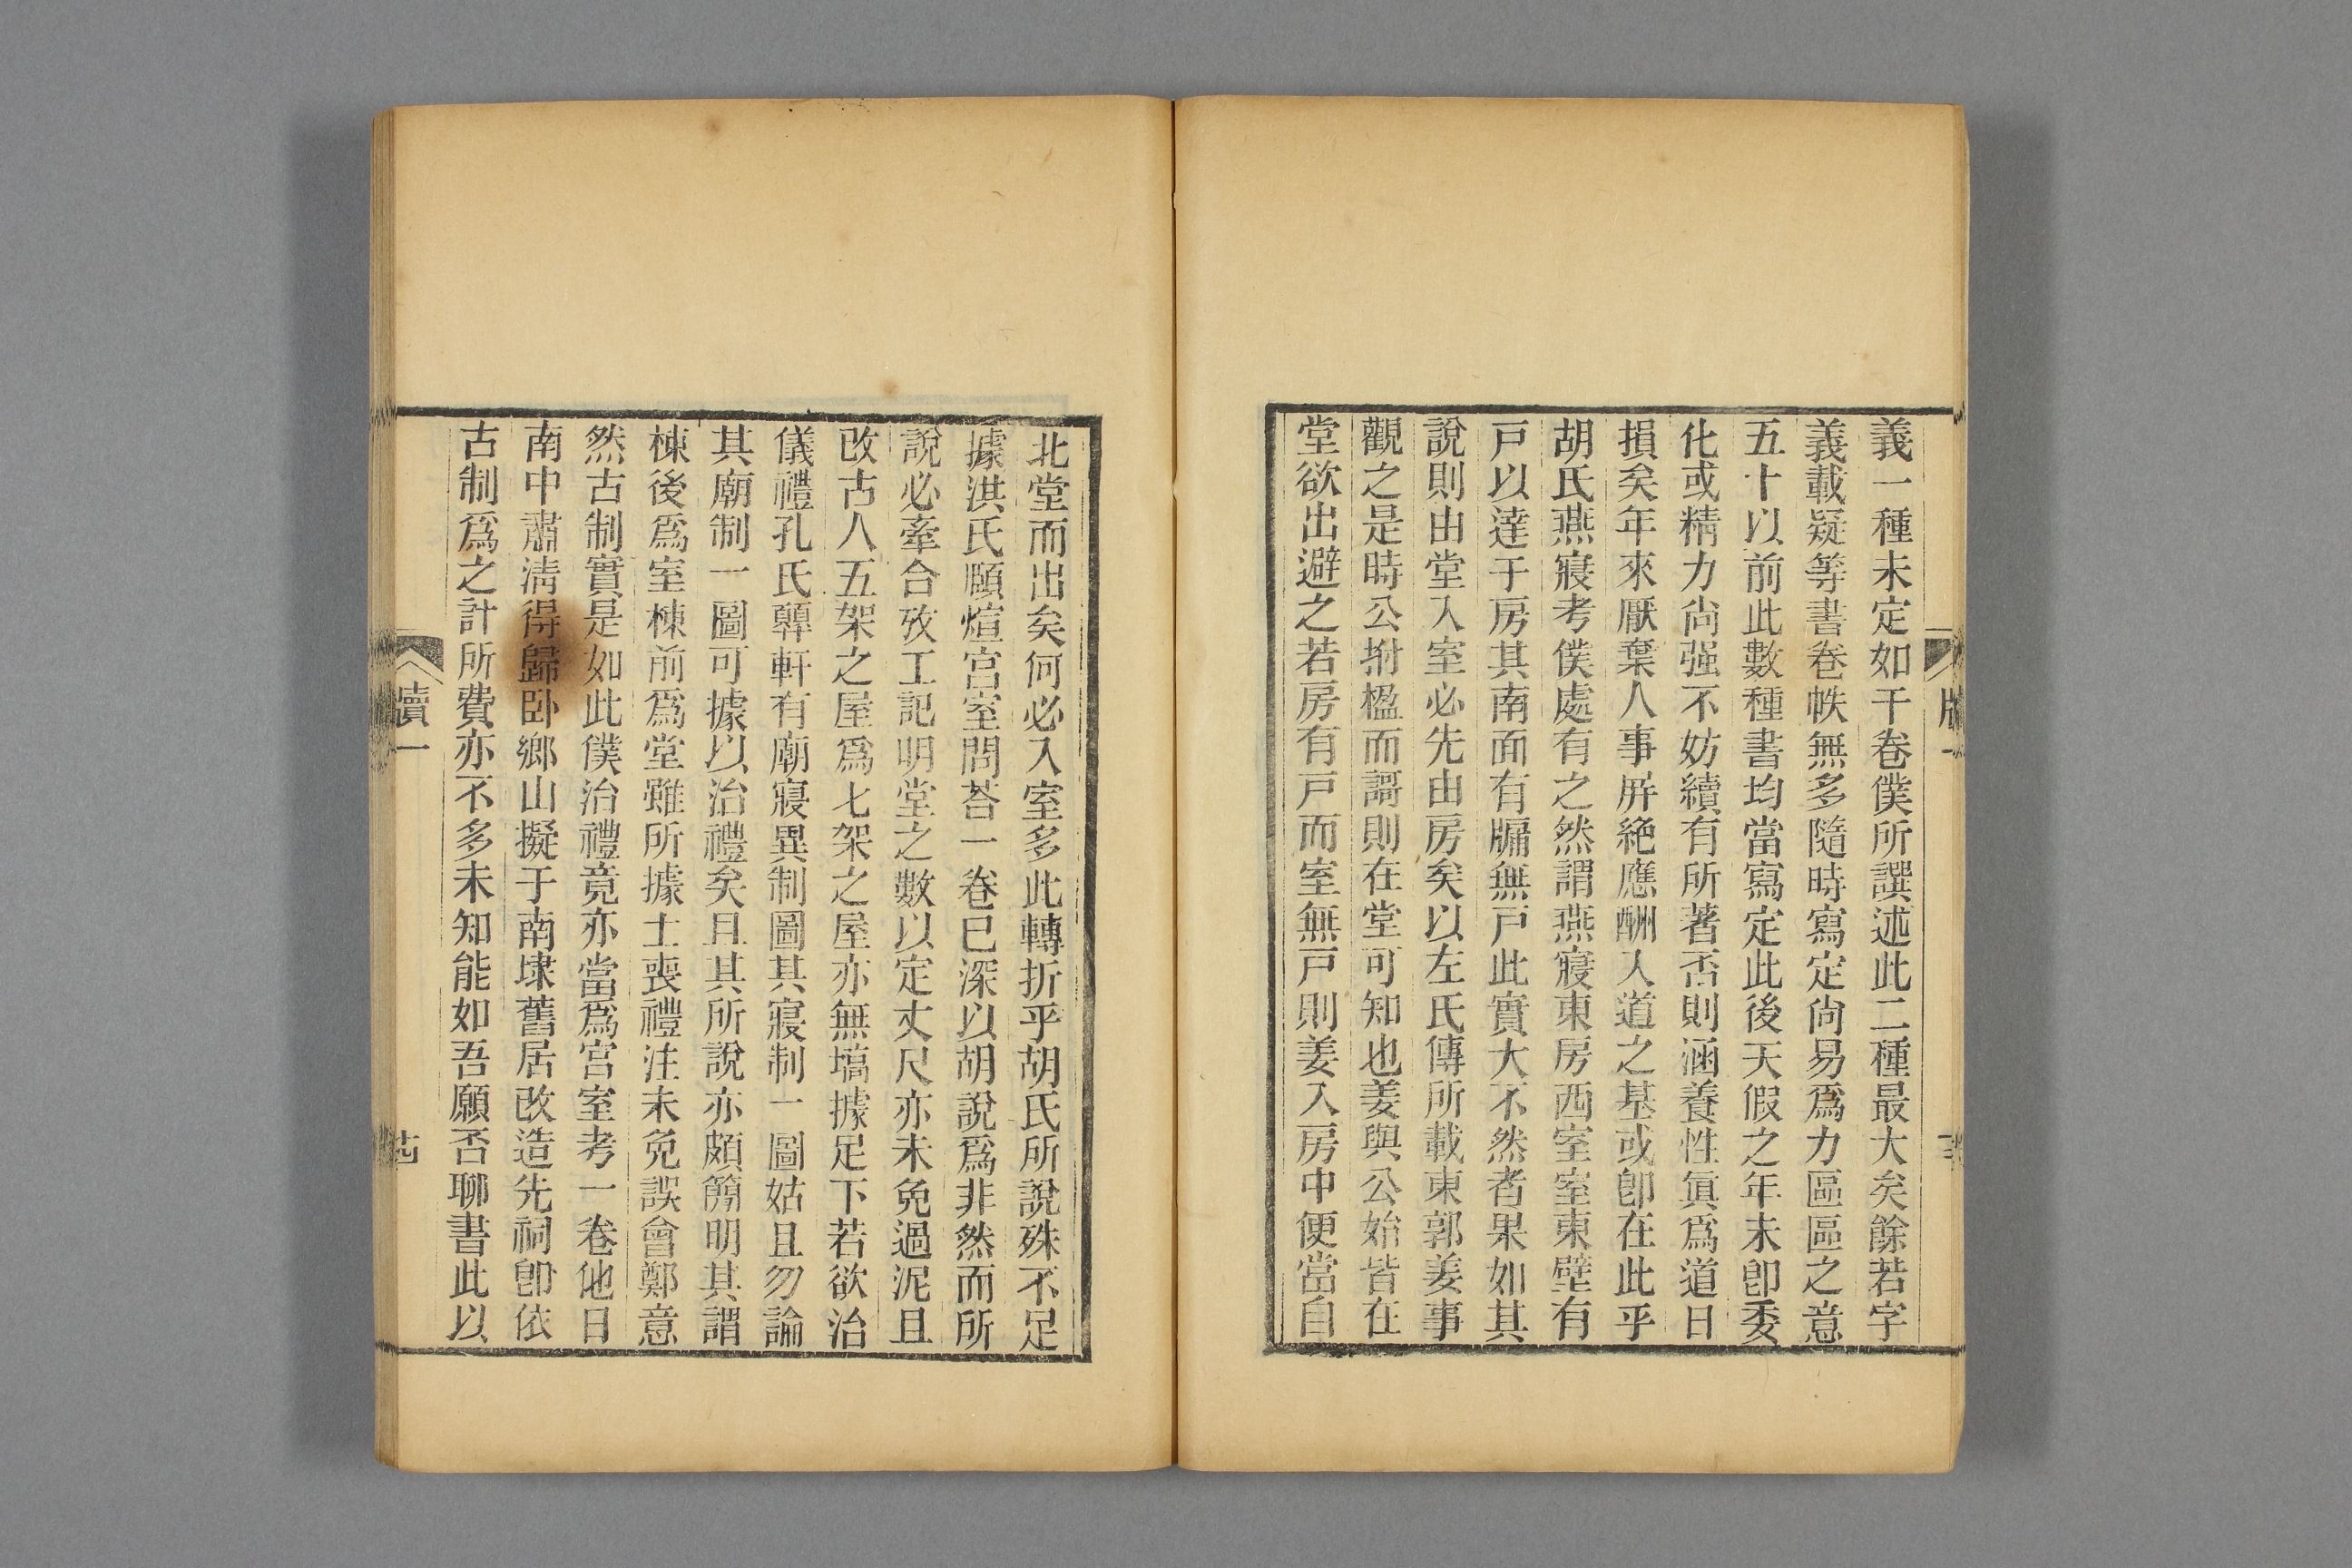 義一種未定如干卷僕所譔述此二種最大矣餘若字
義載疑等書卷帙無多隨時寫定尙易爲力區區之意
五十以前此數種書均當寫定此後天假之年未卽委
化或精力尙强不妨續有所著否則涵養性眞爲道日
損矣年來厭棄人事屛絶應酬入道之基或卽在此乎
胡氏燕寢考僕處有之然謂燕寢東房西室室東壁有
戸以達于房其南面有牖無戸此實大不然者果如其
說則由堂入室必先由房矣以左氏傳所載東郭姜事
觀之是時公拊楹而謌則在堂可知也姜與公始皆在
堂欲出避之若房有戸而室無戸則姜入房中便當自
北堂而出矣何必入室多此轉折乎胡氏所說殊不足
據淇氏頤煊宫室問荅一卷已深以胡說爲非然而所
說必牽合攷工記明堂之數以定丈尺亦未免過泥且
改古人五架之屋爲七架之屋亦無墧據足下若欲治
儀禮孔氏顨軒有廟寢異制圖其寢制一圖姑且勿論
其廟制一圖可據以治禮矣且其所說亦頗簡明其謂
棟後爲室棟前爲堂雖所據士喪禮注未免誤會鄭意
然古制實是如此僕治禮竟亦當爲宫室考一卷他日
南中肅淸得歸卧鄉山擬于南埭舊居改造先祠卽依
古制爲之計所費亦不多未知能如吾願否聊書此以
牘一